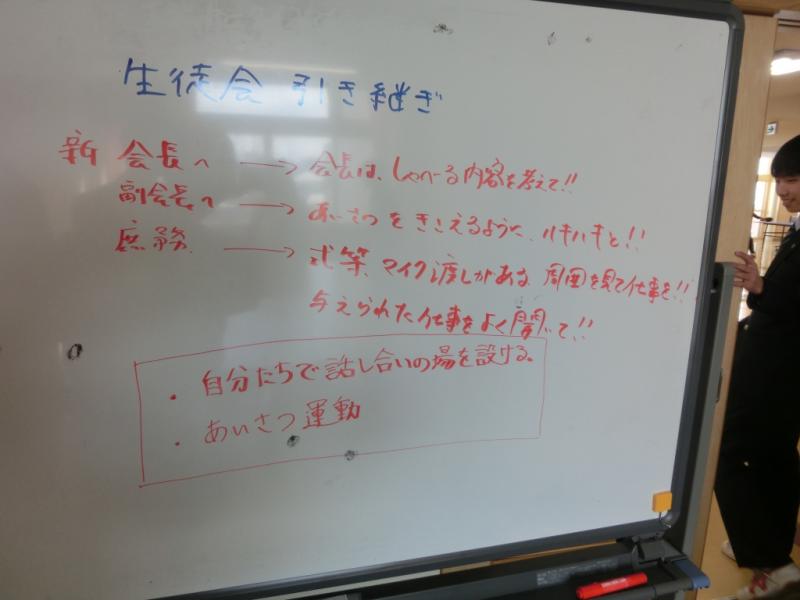 生徒会 引き継ぎ
新 会長へ → 会長は、しゃべーる内容を考えて!!
副会長へ → あいさつをきこえるように、ハキハキと!!
庶務 → 式等、マイク渡しがある。周囲を見て仕事を!!
与えられた仕事をよく聞いて!!
・自分たちで話し合いの場を設ける。
・あいさつ運動